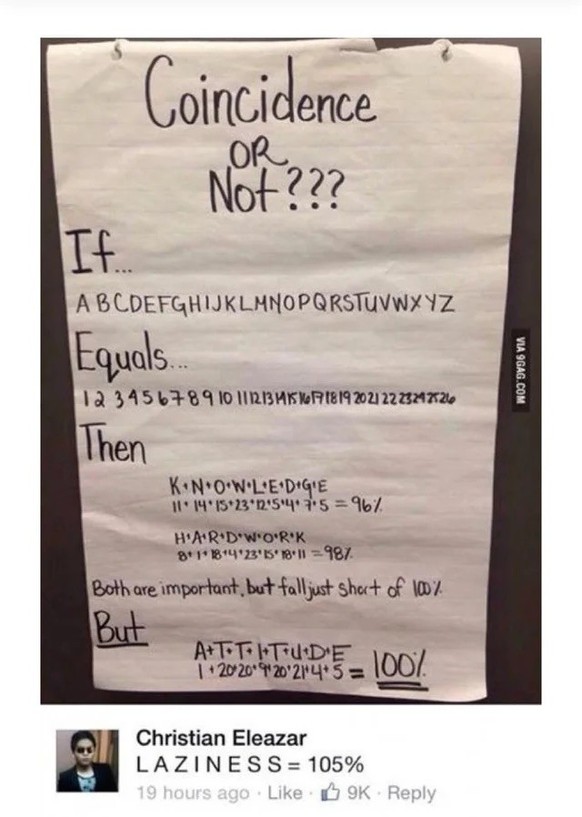 Coincidence
OR
Not???
If...
A B C D E F G H I J K L M N O P Q R S T U V W X Y Z
Equals...
1 2 3 4 5 6 7 8 9 10 11 12 13 14 15 16 17 18 19 20 21 22 23 24 25 26
Then
K+N+O+W+L+E+D+G+E
11+14+15+23+12+5+4+7+5 = 96%
H+A+R+D+W+O+R+K
8+1+18+4+23+15+18+11 = 98%
Both are important, but fall just short of 100%
But
A+T+T+I+T+U+D+E
1+20+20+9+20+21+4+5 = 100%
VIA 9GAG.COM
Christian Eleazar
L A Z I N E S S = 105%
19 hours ago · Like · 9K · Reply